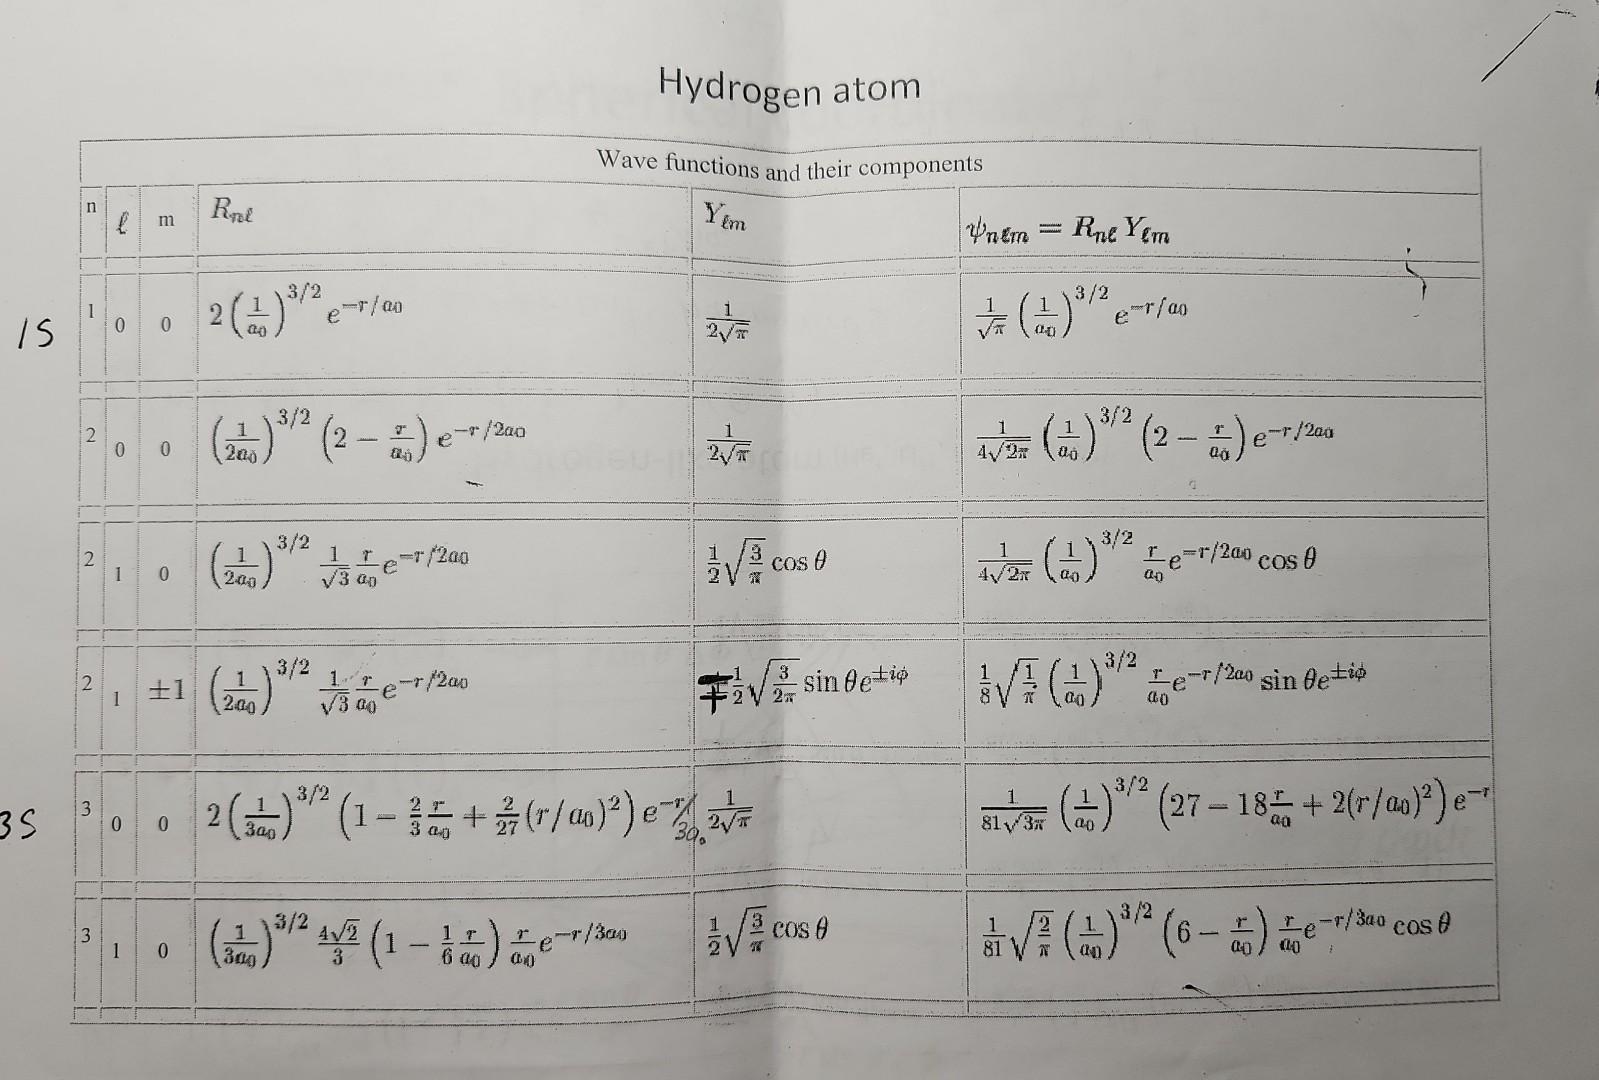 Hydrogen atom
Wave functions and their components
n ℓ m Rnℓ Yℓm ψnℓm = Rnℓ Yℓm
1S 1 0 0 2(1/a0)^3/2 e^−r/a0 1/2√π 1/√π (1/a0)^3/2 e^−r/a0
2 0 0 (1/2a0)^3/2 (2 − r/a0) e^−r/2a0 1/2√π 1/4√2π (1/a0)^3/2 (2 − r/a0) e^−r/2a0
2 1 0 (1/2a0)^3/2 1/√3 r/a0 e^−r/2a0 1/2 √3/π cos θ 1/4√2π (1/a0)^3/2 r/a0 e^−r/2a0 cos θ
2 1 ±1 (1/2a0)^3/2 1/√3 r/a0 e^−r/2a0 ∓1/2 √3/2π sin θe^±iϕ 1/8 √1/π (1/a0)^3/2 r/a0 e^−r/2a0 sin θe^±iϕ
3S 3 0 0 2(1/3a0)^3/2 (1 − 2/3 r/a0 + 2/27 (r/a0)^2) e^−r/3a0 1/2√π 1/81√3π (1/a0)^3/2 (27 − 18 r/a0 + 2(r/a0)^2) e^−r
3 1 0 (1/3a0)^3/2 4√2/3 (1 − 1/6 r/a0) r/a0 e^−r/3a0 1/2 √3/π cos θ 1/81 √2/π (1/a0)^3/2 (6 − r/a0) r/a0 e^−r/3a0 cos θ